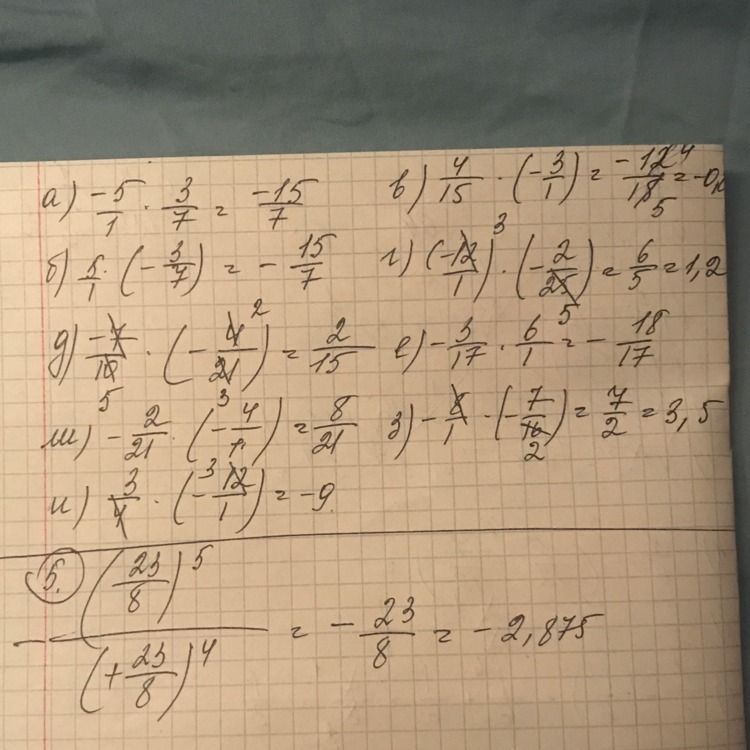 а) -5/1 · 3/7 = -15/7 в) 4/15 · (-3/1) = -12 4/15 5 = -0,
б) 5/1 · (-3/7) = -15/7 г) (-12/1) 3 · (-2/25) = 6/5 = 1,2
д) -7/10 5 · (-4 2/21 3) = 2/15 е) -3/17 · 6/1 = -18/17
ж) -2/21 · (-4/1) = 8/21 з) -8/1 · (-7/16 2) = 7/2 = 3,5
и) 3/4 · (-3 12/1) = -9
5. - (23/8)^5 / (+23/8)^4 = -23/8 = -2,875